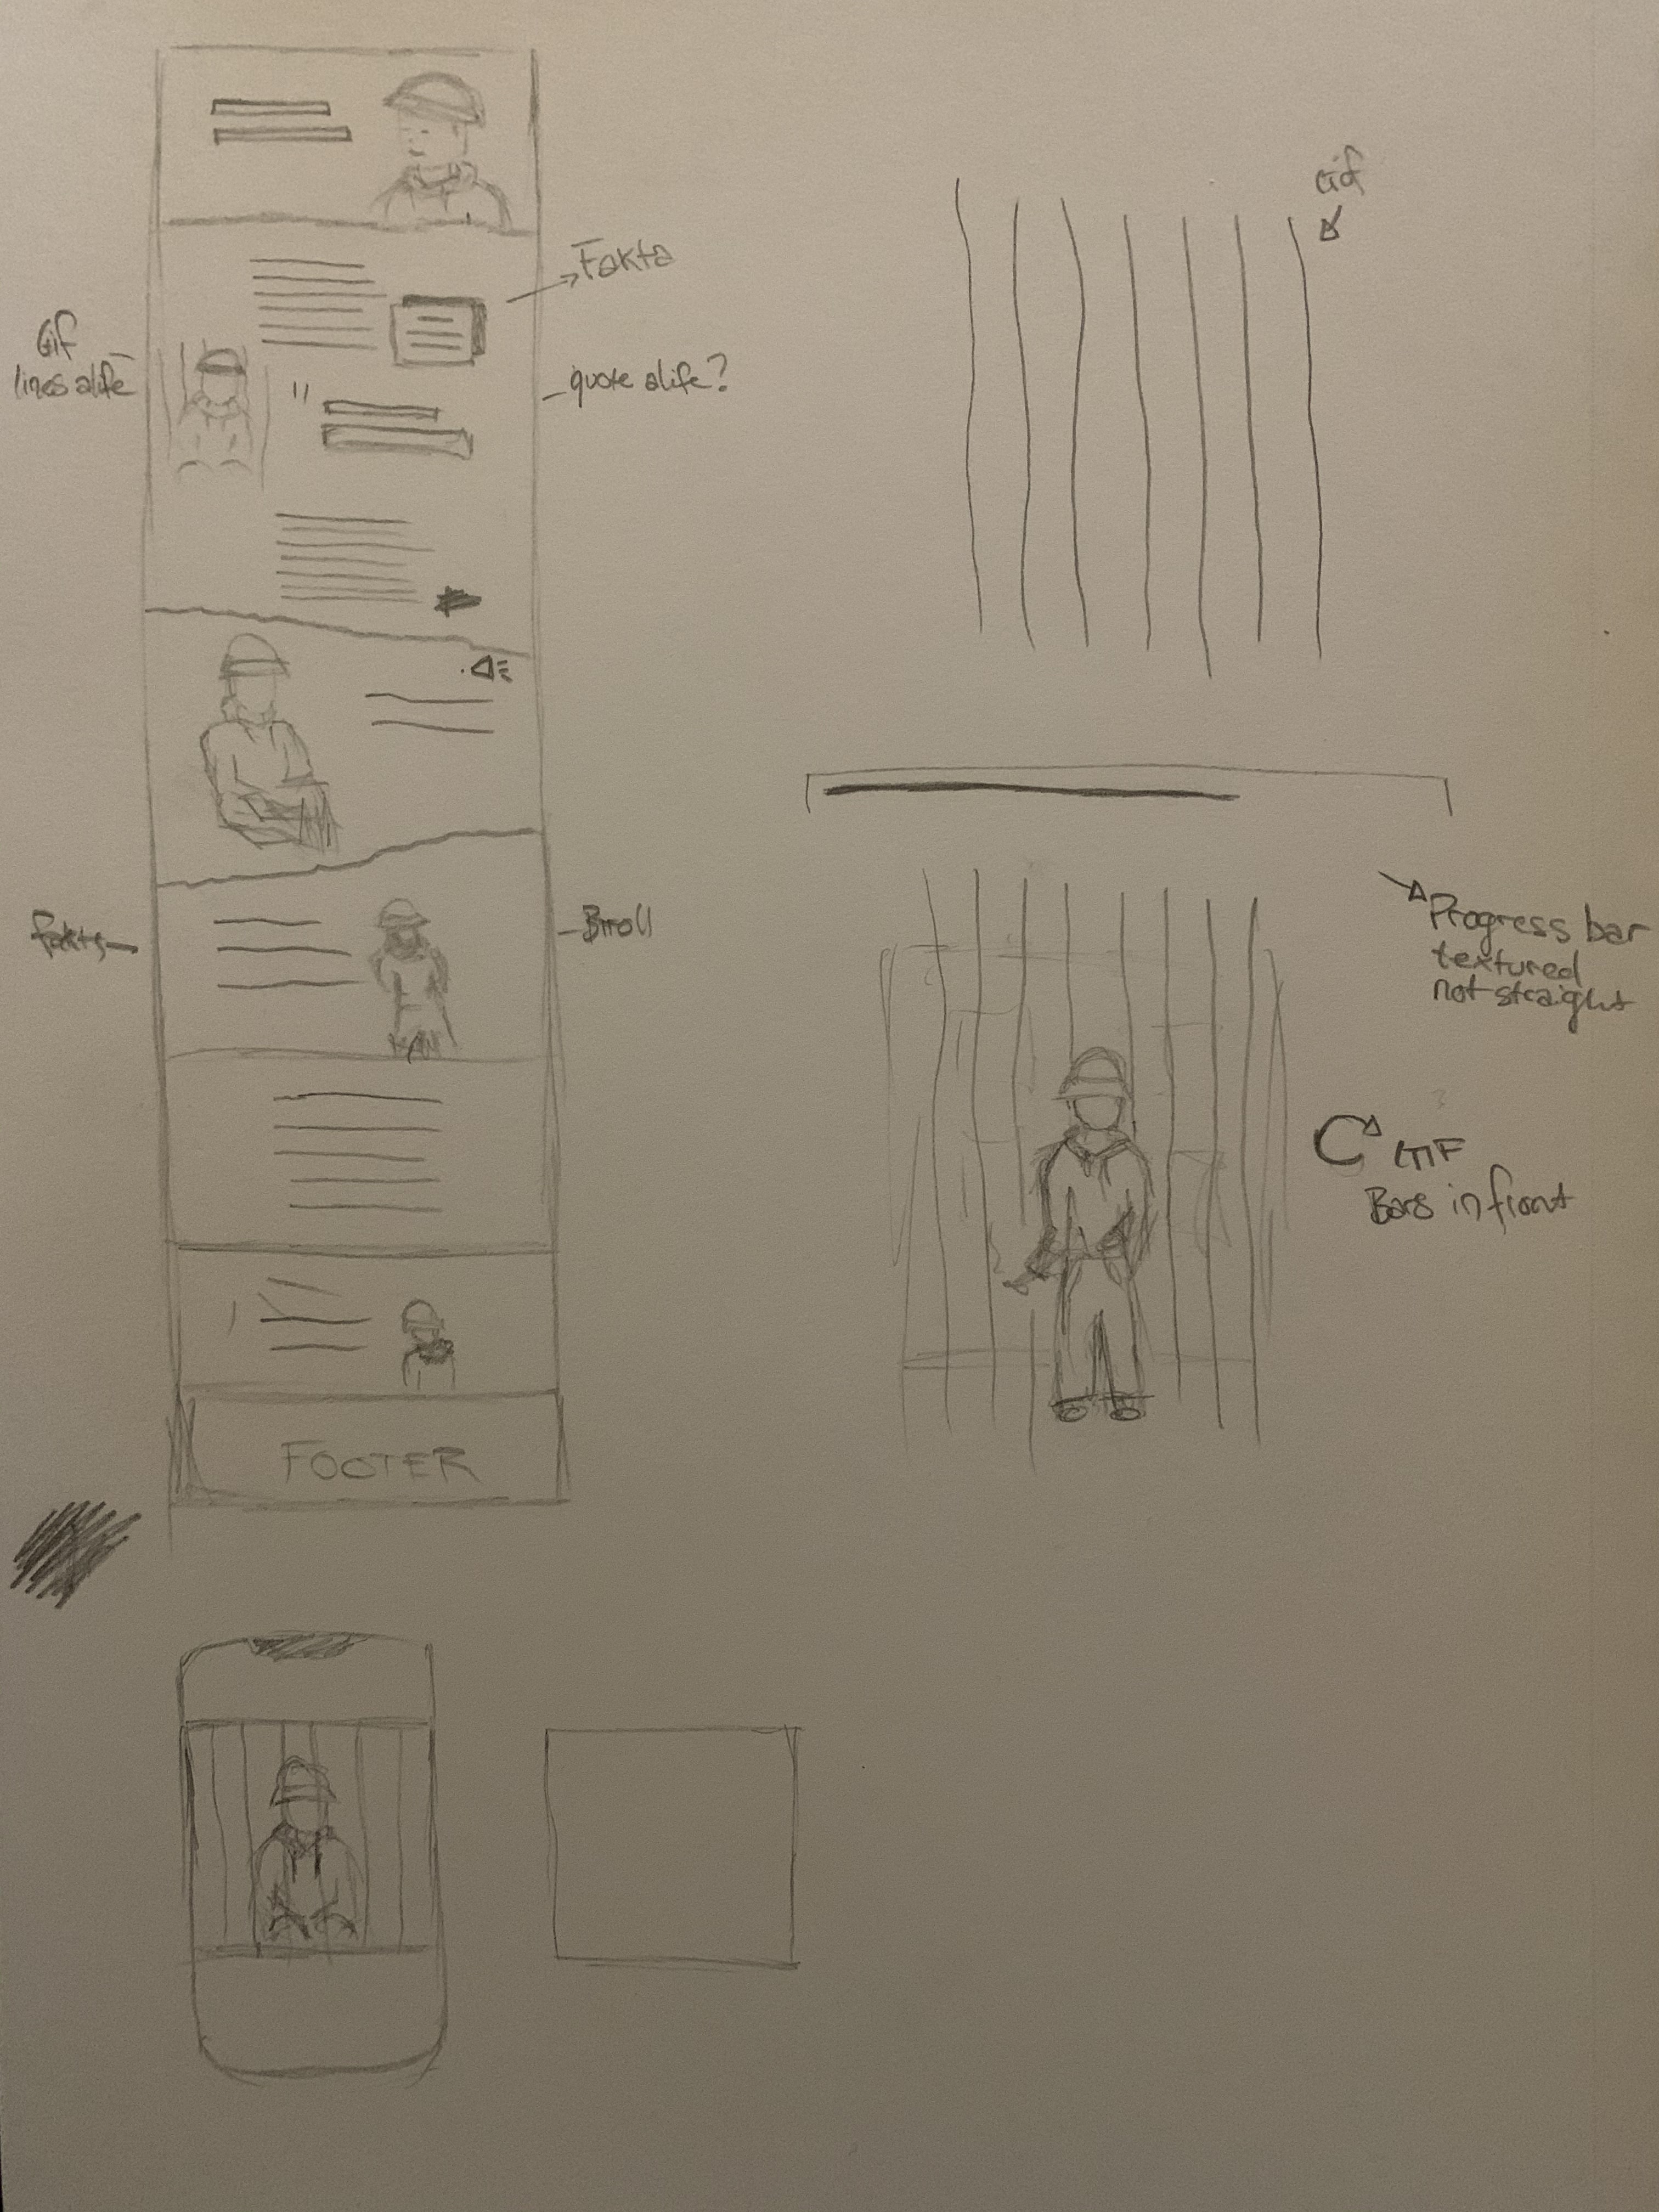 Gif
Fakta
Gif
lines alife
quote alife?
"
Fakta
Broll
Progress bar
textured
not straight
GIF
Bars in front
FOOTER